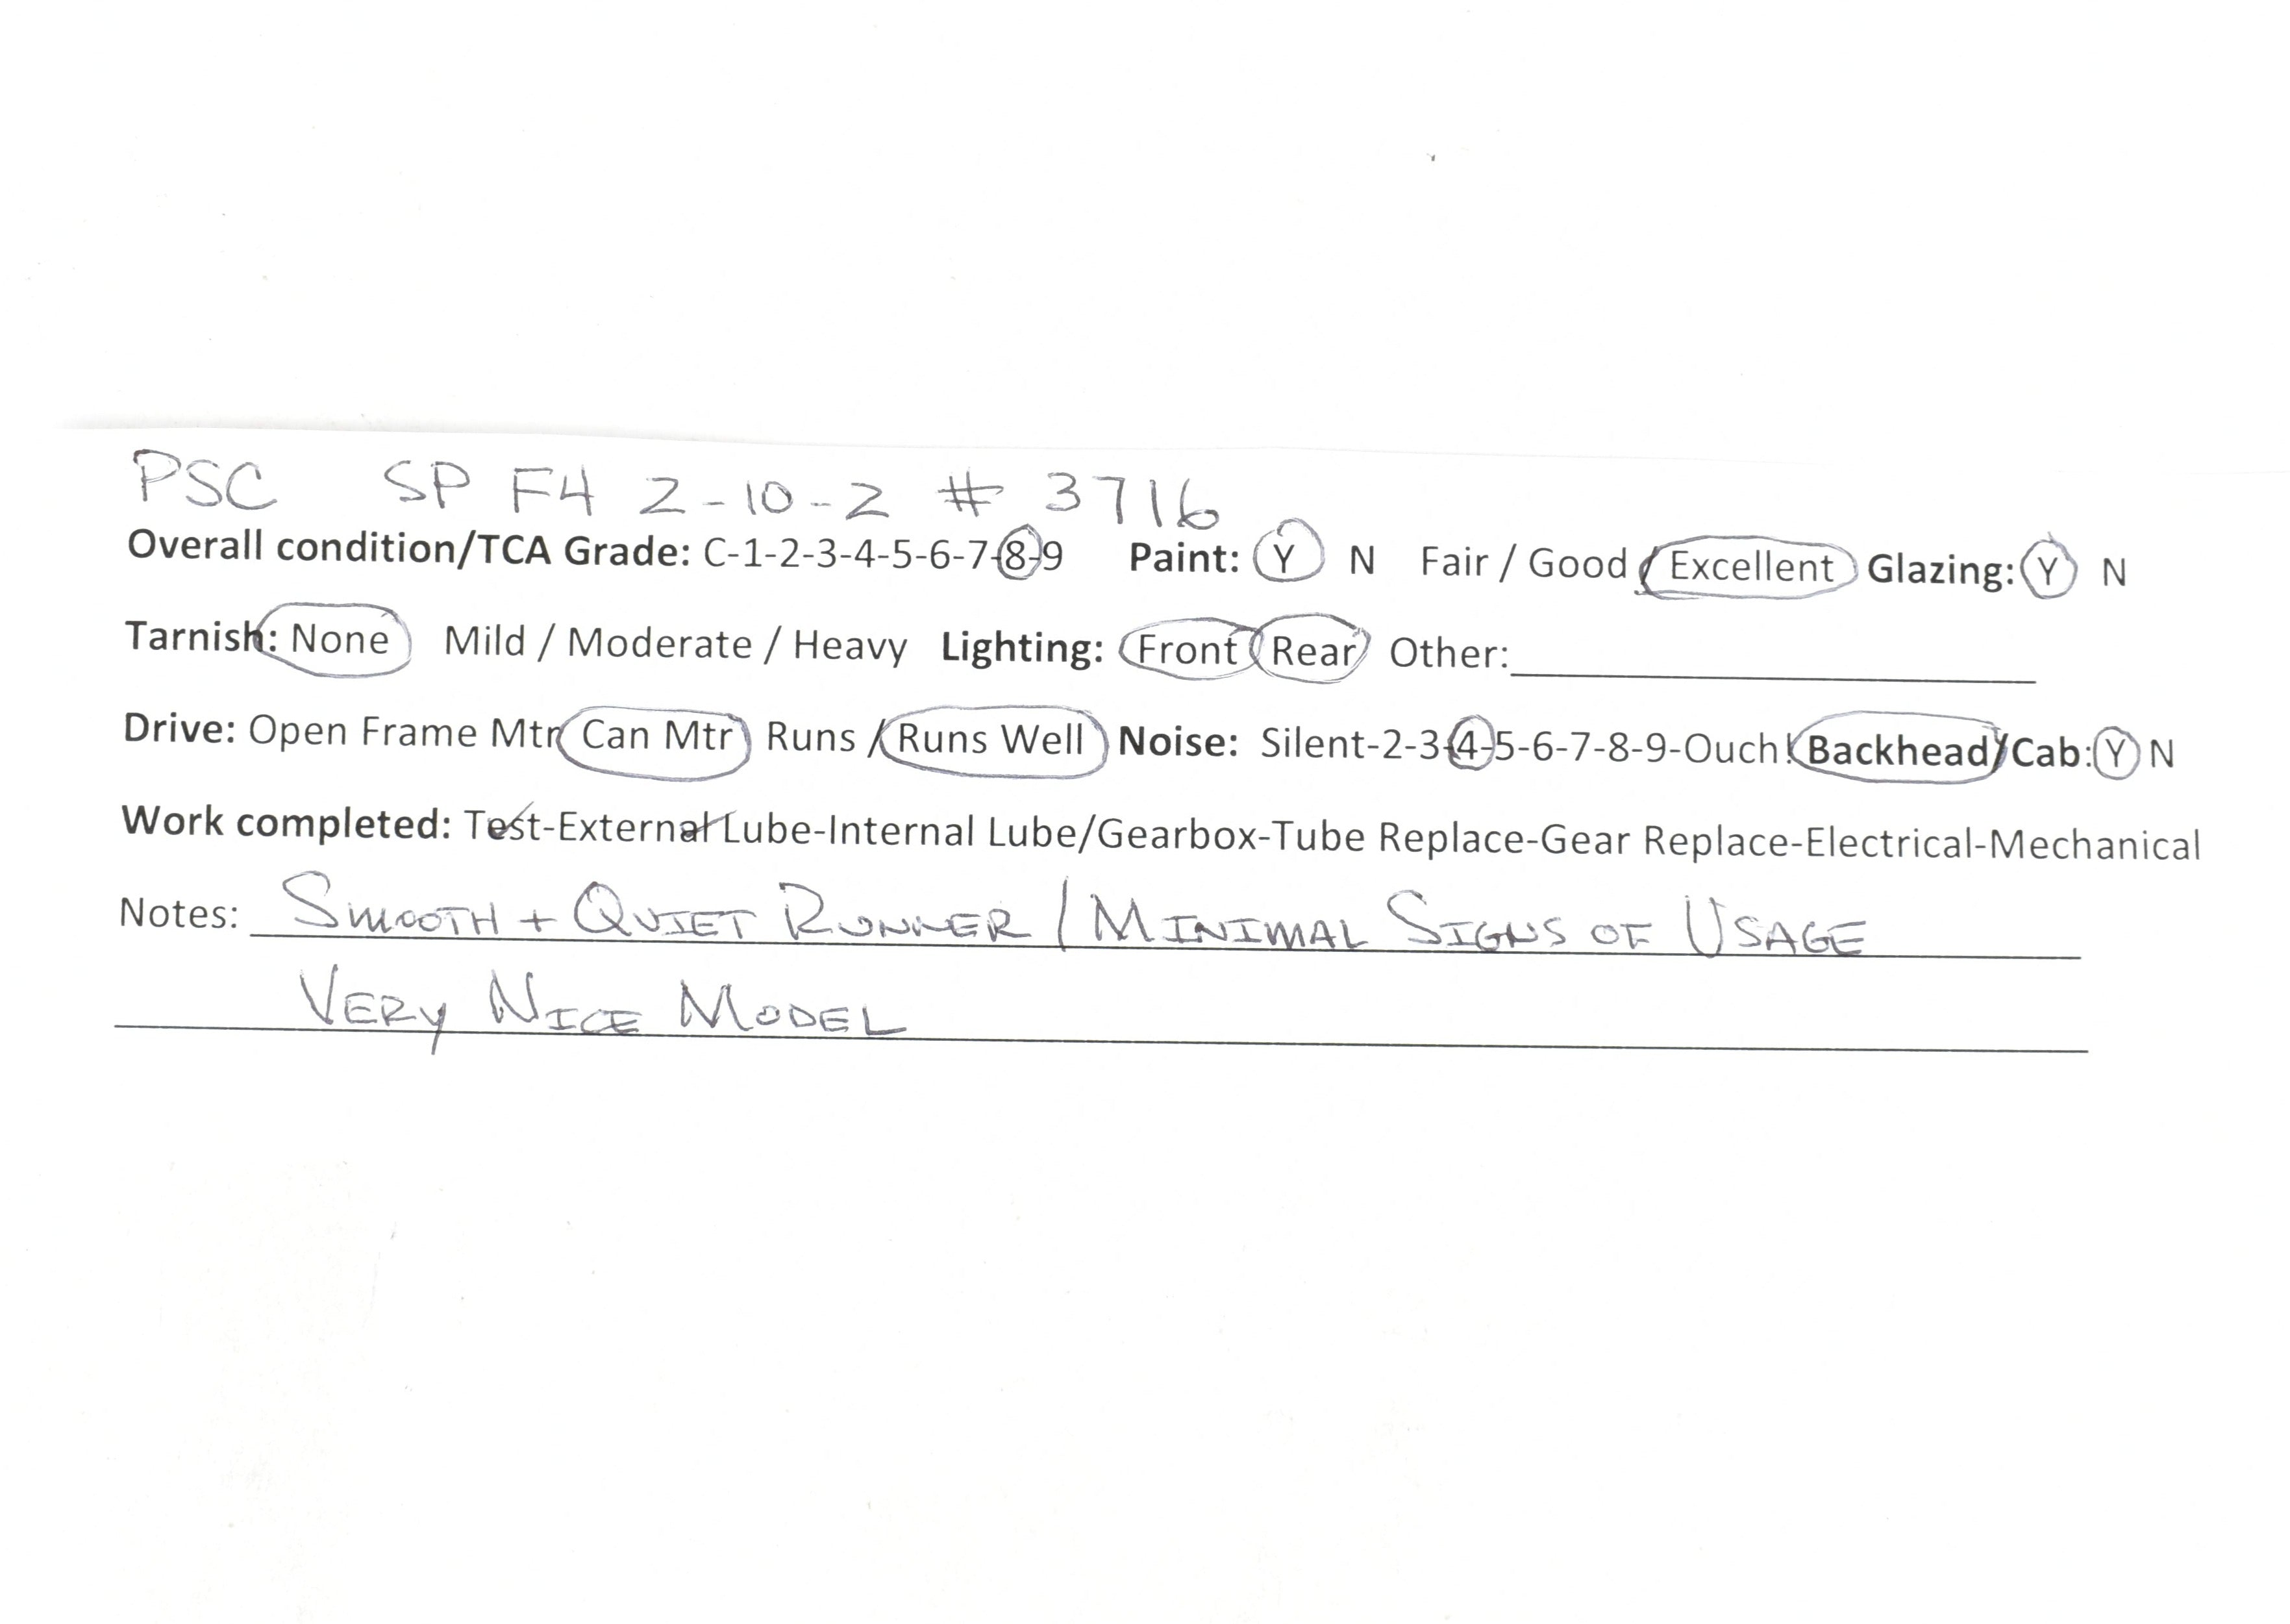 PSC SP F4 2-10-2 # 3716
Overall condition/TCA Grade: C-1-2-3-4-5-6-7-8-9 Paint: Y N Fair / Good / Excellent Glazing: Y N
Tarnish: None Mild / Moderate / Heavy Lighting: Front Rear Other:
Drive: Open Frame Mtr Can Mtr Runs / Runs Well Noise: Silent-2-3-4-5-6-7-8-9-Ouch! Backhead/Cab: Y N
Work completed: Test-External Lube-Internal Lube/Gearbox-Tube Replace-Gear Replace-Electrical-Mechanical
Notes: SMOOTH + QUIET RUNNER / MINIMAL SIGNS OF USAGE
VERY NICE MODEL